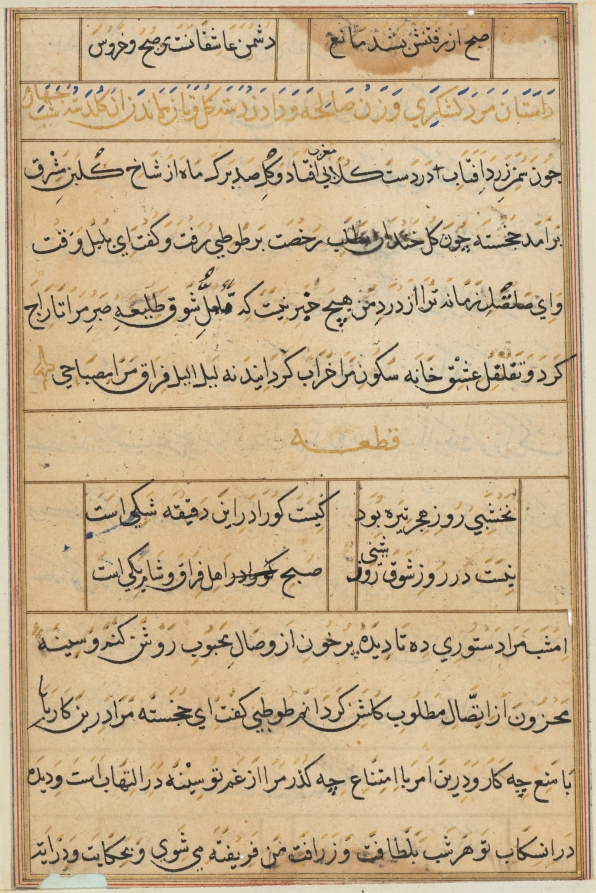 صبح از رفتنش بشد مانع دشمن عاشقانست صبح و خروس
داستان مرد لشکری و زن صالحه و دادن دسته گل و تازه ماندن آن گلدسته
چون سمر زرد آفتاب در دست کلابی مغرب افتاد و گل صد برک ماه از شاخ گلبن شرق
برآمد خجسته چون گل خندان بطلب رخصت بر طوطی رفت و گفت ای بلبل وقت
وای صلصل زمانه ترا از درد من هیچ خبر نیست که تململ شوق طلیعه صبر مرا تاراج
کرد و تقلقل عشق خانه سکون مرا خراب کردانید نه لیل فراق مرا مصباحی
قطعه
نخشبی روز هجر تیره بود کیست کورا درین دقیقه شکی است
نیست در روز شوق روشنی صبح اهل فراق و شام یکی است
امشب مرا دستوری ده تا دیده پر خون از وصال محبوب روشن کنم و سینه
محزون از اتصال مطلوب گلشن کردانم طوطی گفت ای خجسته مرا درین کار با
با منع چه کار و درین امر با امتناع چه گذر مرا از غم تو سینه در التهاب است و دیده
در انسکاب تو هر شب بلطافت و زرافت من فریفته می شوی و بحکایت و درایت